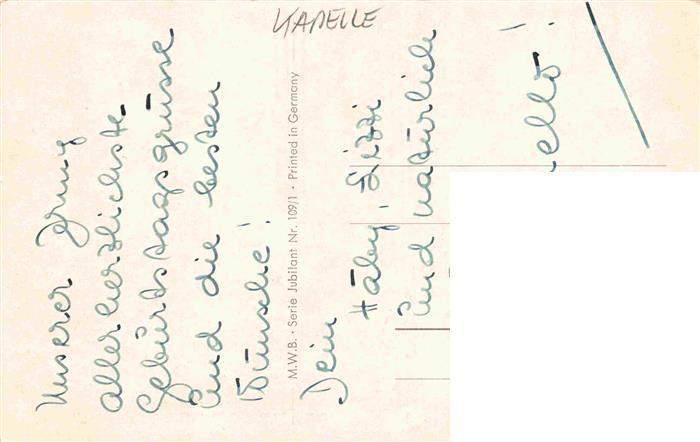 KAPELLE
Unserer
allerherzlichste
Geburtstagsgrüsse
und die besten
Wünsche!
M.W.B. · Serie Jubilant Nr. 109/1 · Printed in Germany
Dein
Lizzi
und natürlich